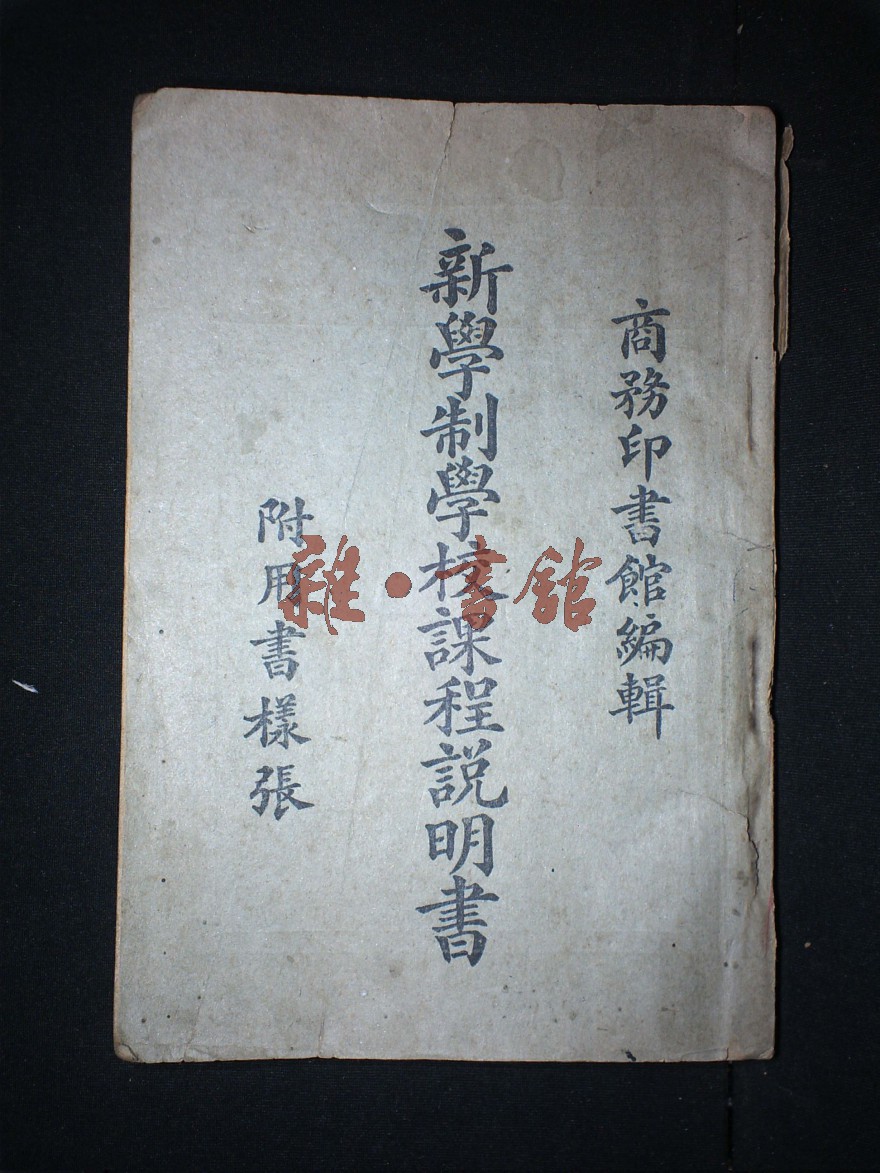 商務印書館編輯
新學制學校課程説明書
附用書樣張
雜·書館